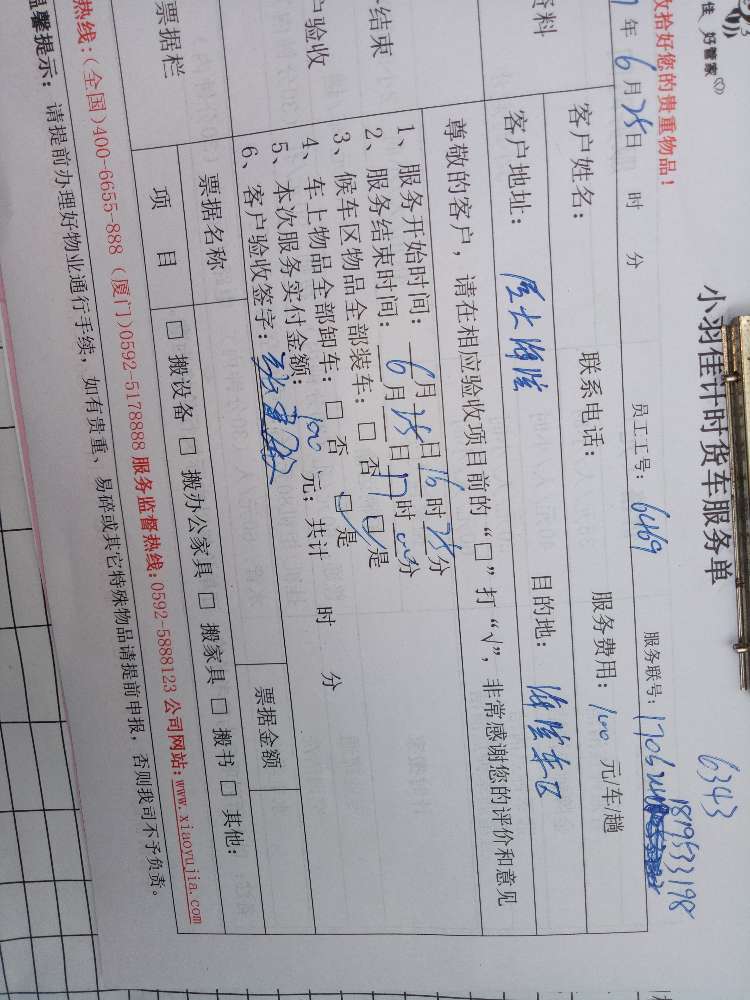 佳 好管家
小羽佳计时货车服务单
6343
收拾好您的贵重物品!
年 6月25日 时 分
员工工号: 6469
服务联号: 1706
1819533198
资料
客户姓名:
联系电话:
服务费用: 100 元/车/趟
客户地址: 医大海沧
目的地: 海沧东区
尊敬的客户, 请在相应验收项目前的“□”打“√”, 非常感谢您的评价和意见
结束
验收
1、服务开始时间: 6月25日16时25分
2、服务结束时间: 月 日17时00分
3、候车区物品全部装车: □ 否 □ 是
4、车上物品全部卸车: □ 否 □ 是
5、本次服务实付金额: 100 元; 共计 时 分
6、客户验收签字:
票据栏
票据名称
票据金额
项 目
□ 搬设备 □ 搬办公家具 □ 搬家具 □ 搬书 □ 其他:
热线: (全国)400-6655-888 (厦门)0592-5178888 服务监督热线:0592-5888123 公司网站:www.xiaoyujia.com
温馨提示: 请提前办理好物业通行手续, 如有贵重、易碎或其它特殊物品请提前申报, 否则我司不予负责。